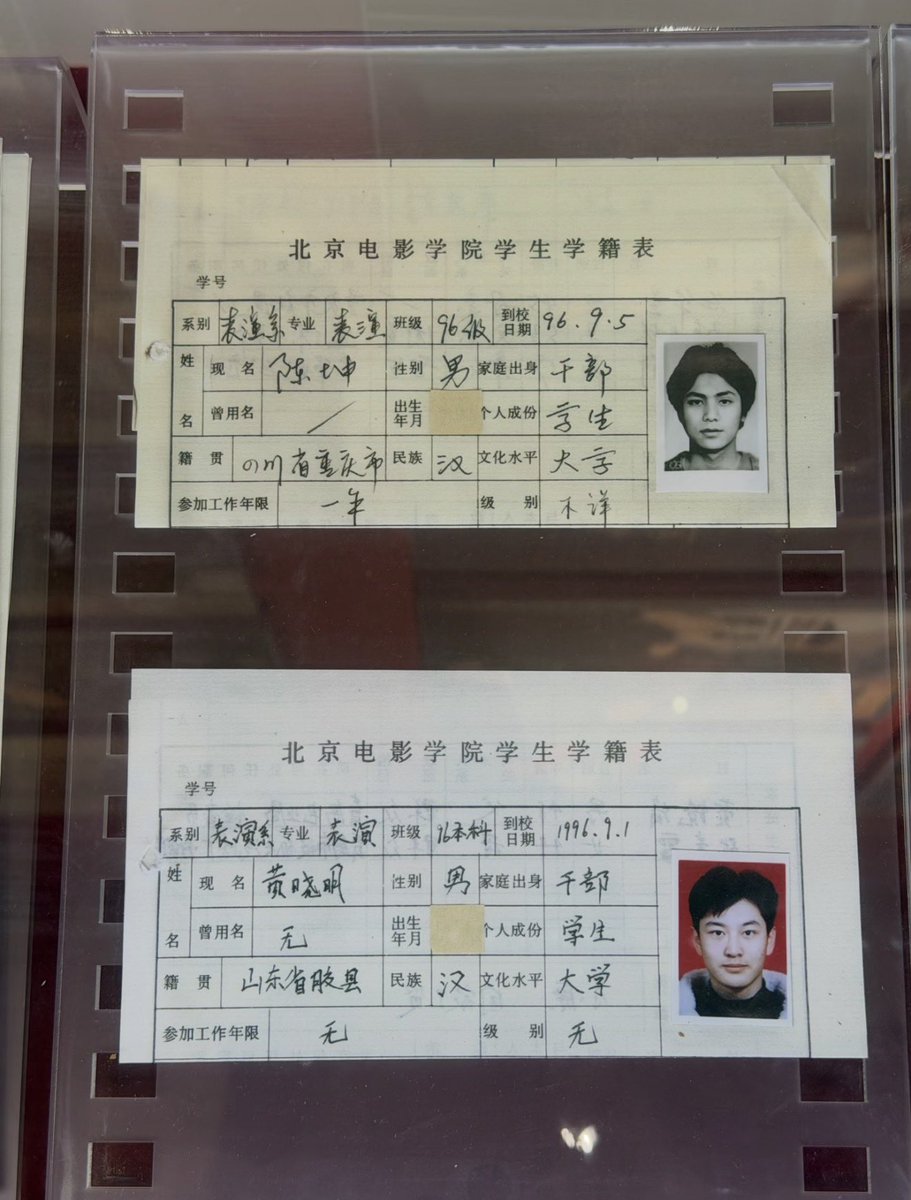 北京电影学院学生学籍表
学号
系别 表演系 专业 表演 班级 96级 到校日期 96.9.5
姓名 现名 陈坤 性别 男 家庭出身 干部
曾用名 / 出生年月 个人成份 学生
籍贯 四川省重庆市 民族 汉 文化水平 大学
参加工作年限 一年 级别 不详
北京电影学院学生学籍表
学号
系别 表演系 专业 表演 班级 96本科 到校日期 1996.9.1
姓名 现名 黄晓明 性别 男 家庭出身 干部
曾用名 无 出生年月 个人成份 学生
籍贯 山东省胶县 民族 汉 文化水平 大学
参加工作年限 无 级别 无